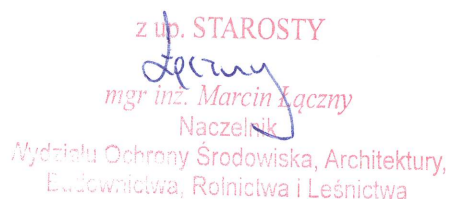 z up. STAROSTY
Łączny
mgr inż. Marcin Łączny
Naczelnik
Wydziału Ochrony Środowiska, Architektury,
Budownictwa, Rolnictwa i Leśnictwa